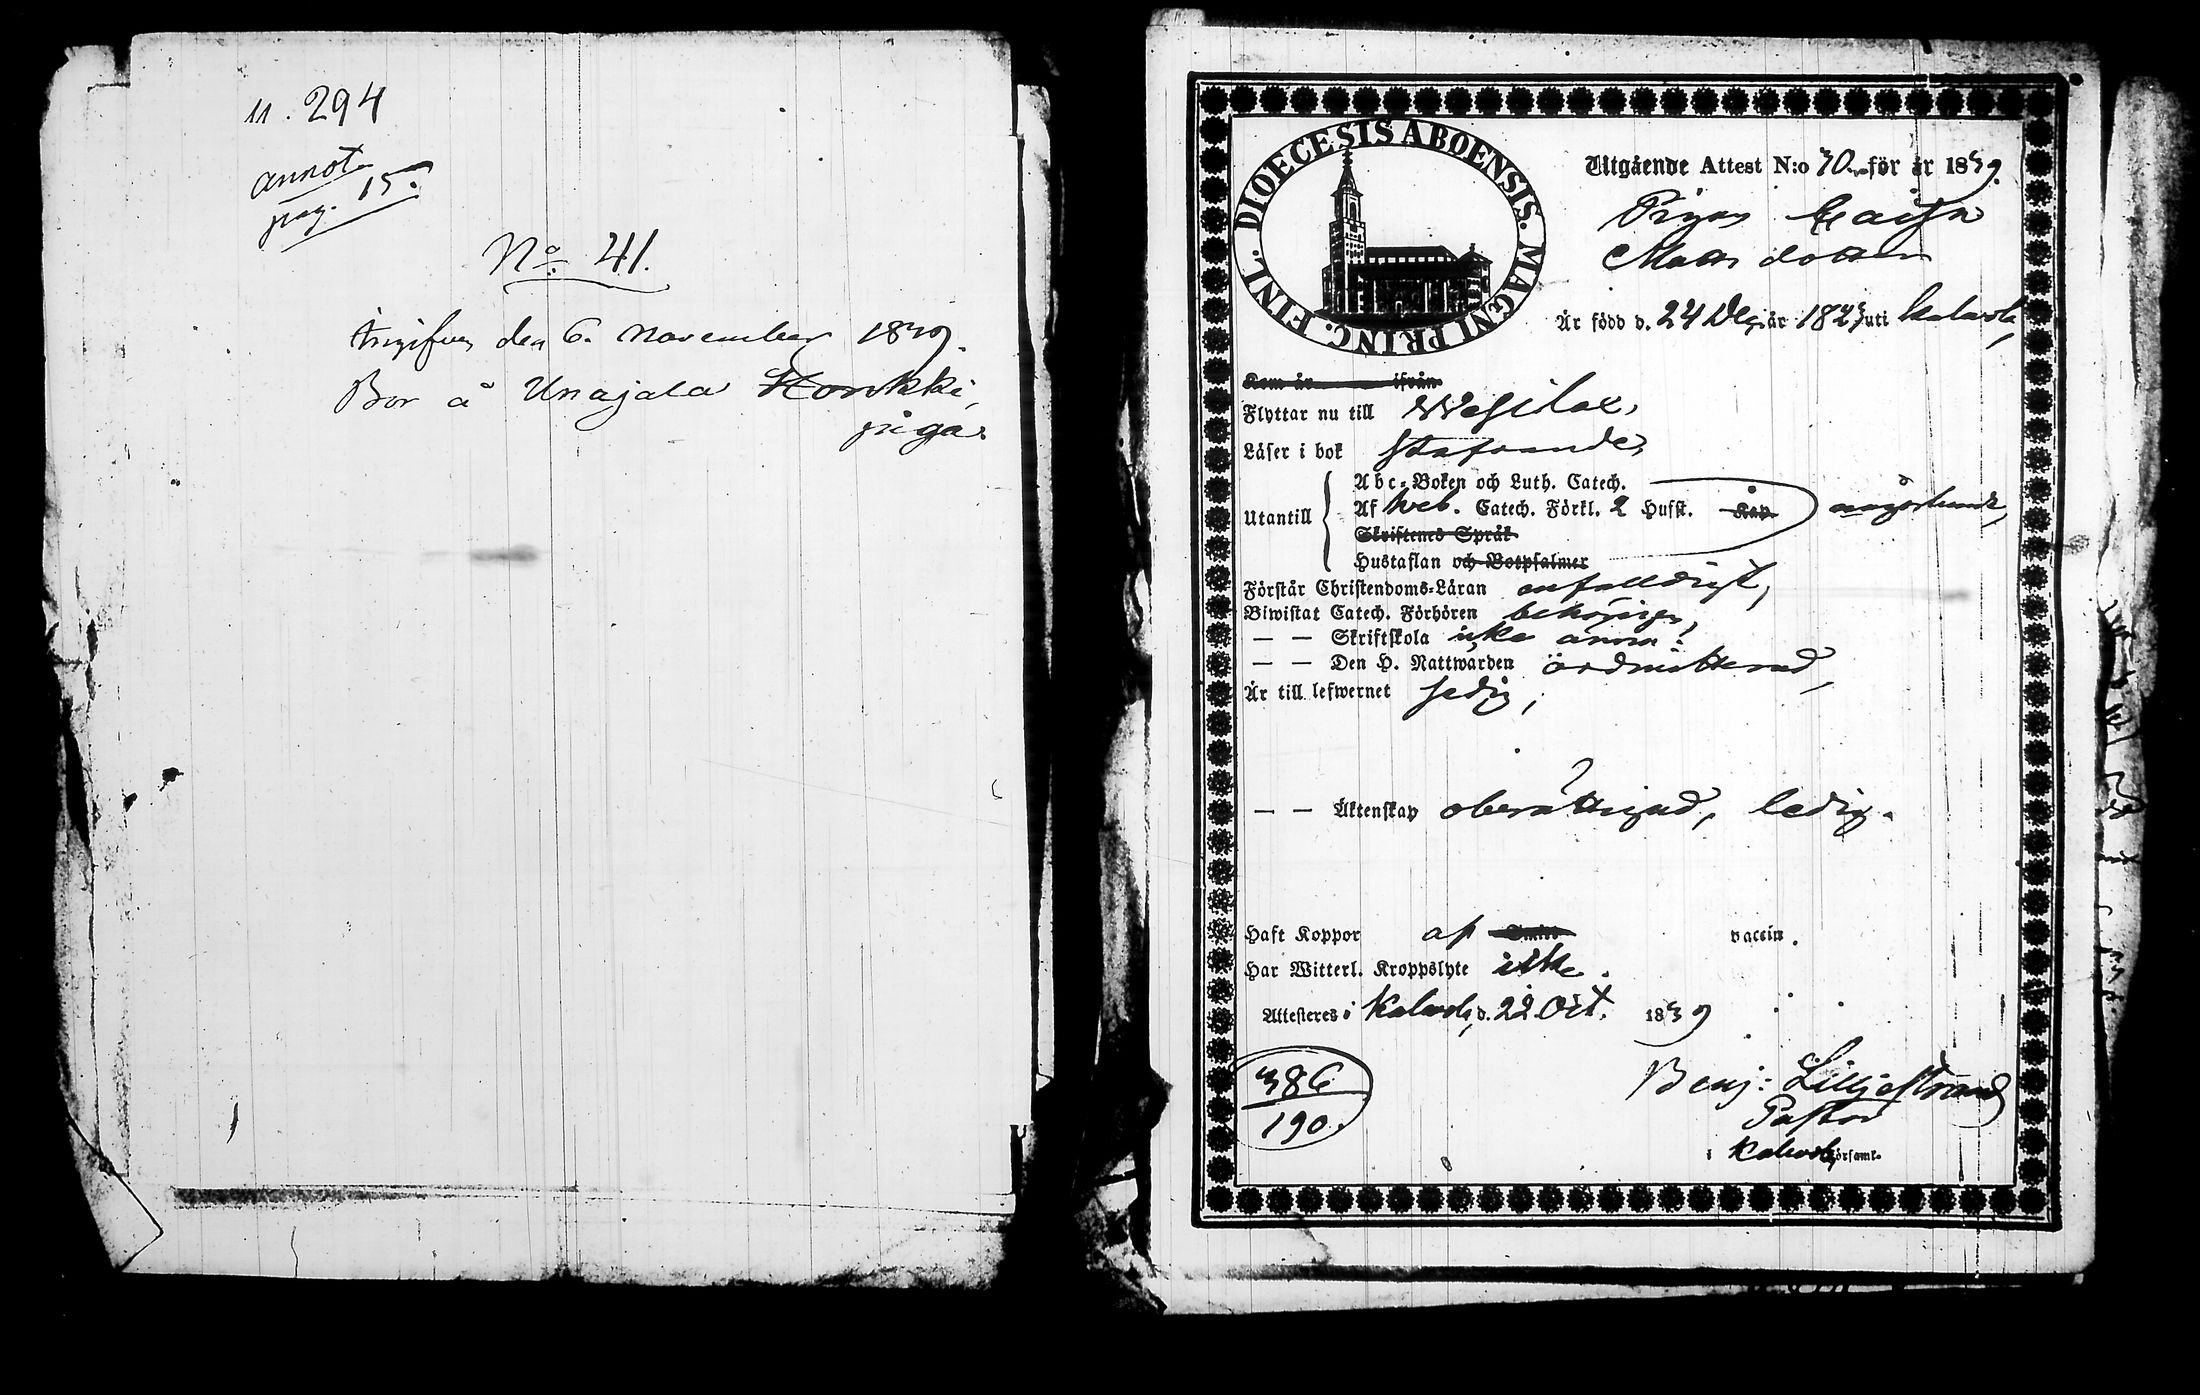 11. 294
annot.
pag. 15.
No 41.
Ingifven den 6. November 1839.
Bor å Unajala Honkki,
piga.
FINL. DIOECESIS ABOENSIS. MAGNI PRINC.
Utgående Attest N:o 70 för år 1839.
Pigan Cajsa
Matts dotter
Är född d. 24 Dec. år 1823 uti Kalvola,
Kom år ifrån
Flyttar nu till Wesilax,
Läser i bok stafvande,
Abc-Boken och Luth. Catech.
Utantill Af Web. Catech. Förkl. 2 Hufst. Kap
Skriftenes Språk
Hustaflan och Botpsalmer
Förstår Christendoms-Läran enfalldigt,
Biwistat Catech. Förhören behörigen,
— — Skriftskola icke ännu!
— — Den H. Nattwarden oadmitterad,
Är till lefwernet sedig,
— — Äktenskap oberättigad, ledig.
Haft Koppor af vaccin.
Har Witterl. Kroppslyte icke.
Attesteres i Kalvola, d. 22 Oct. 1839
386
190.
Benj: Lilljestrand
Pastor
i Kalvola Församl.